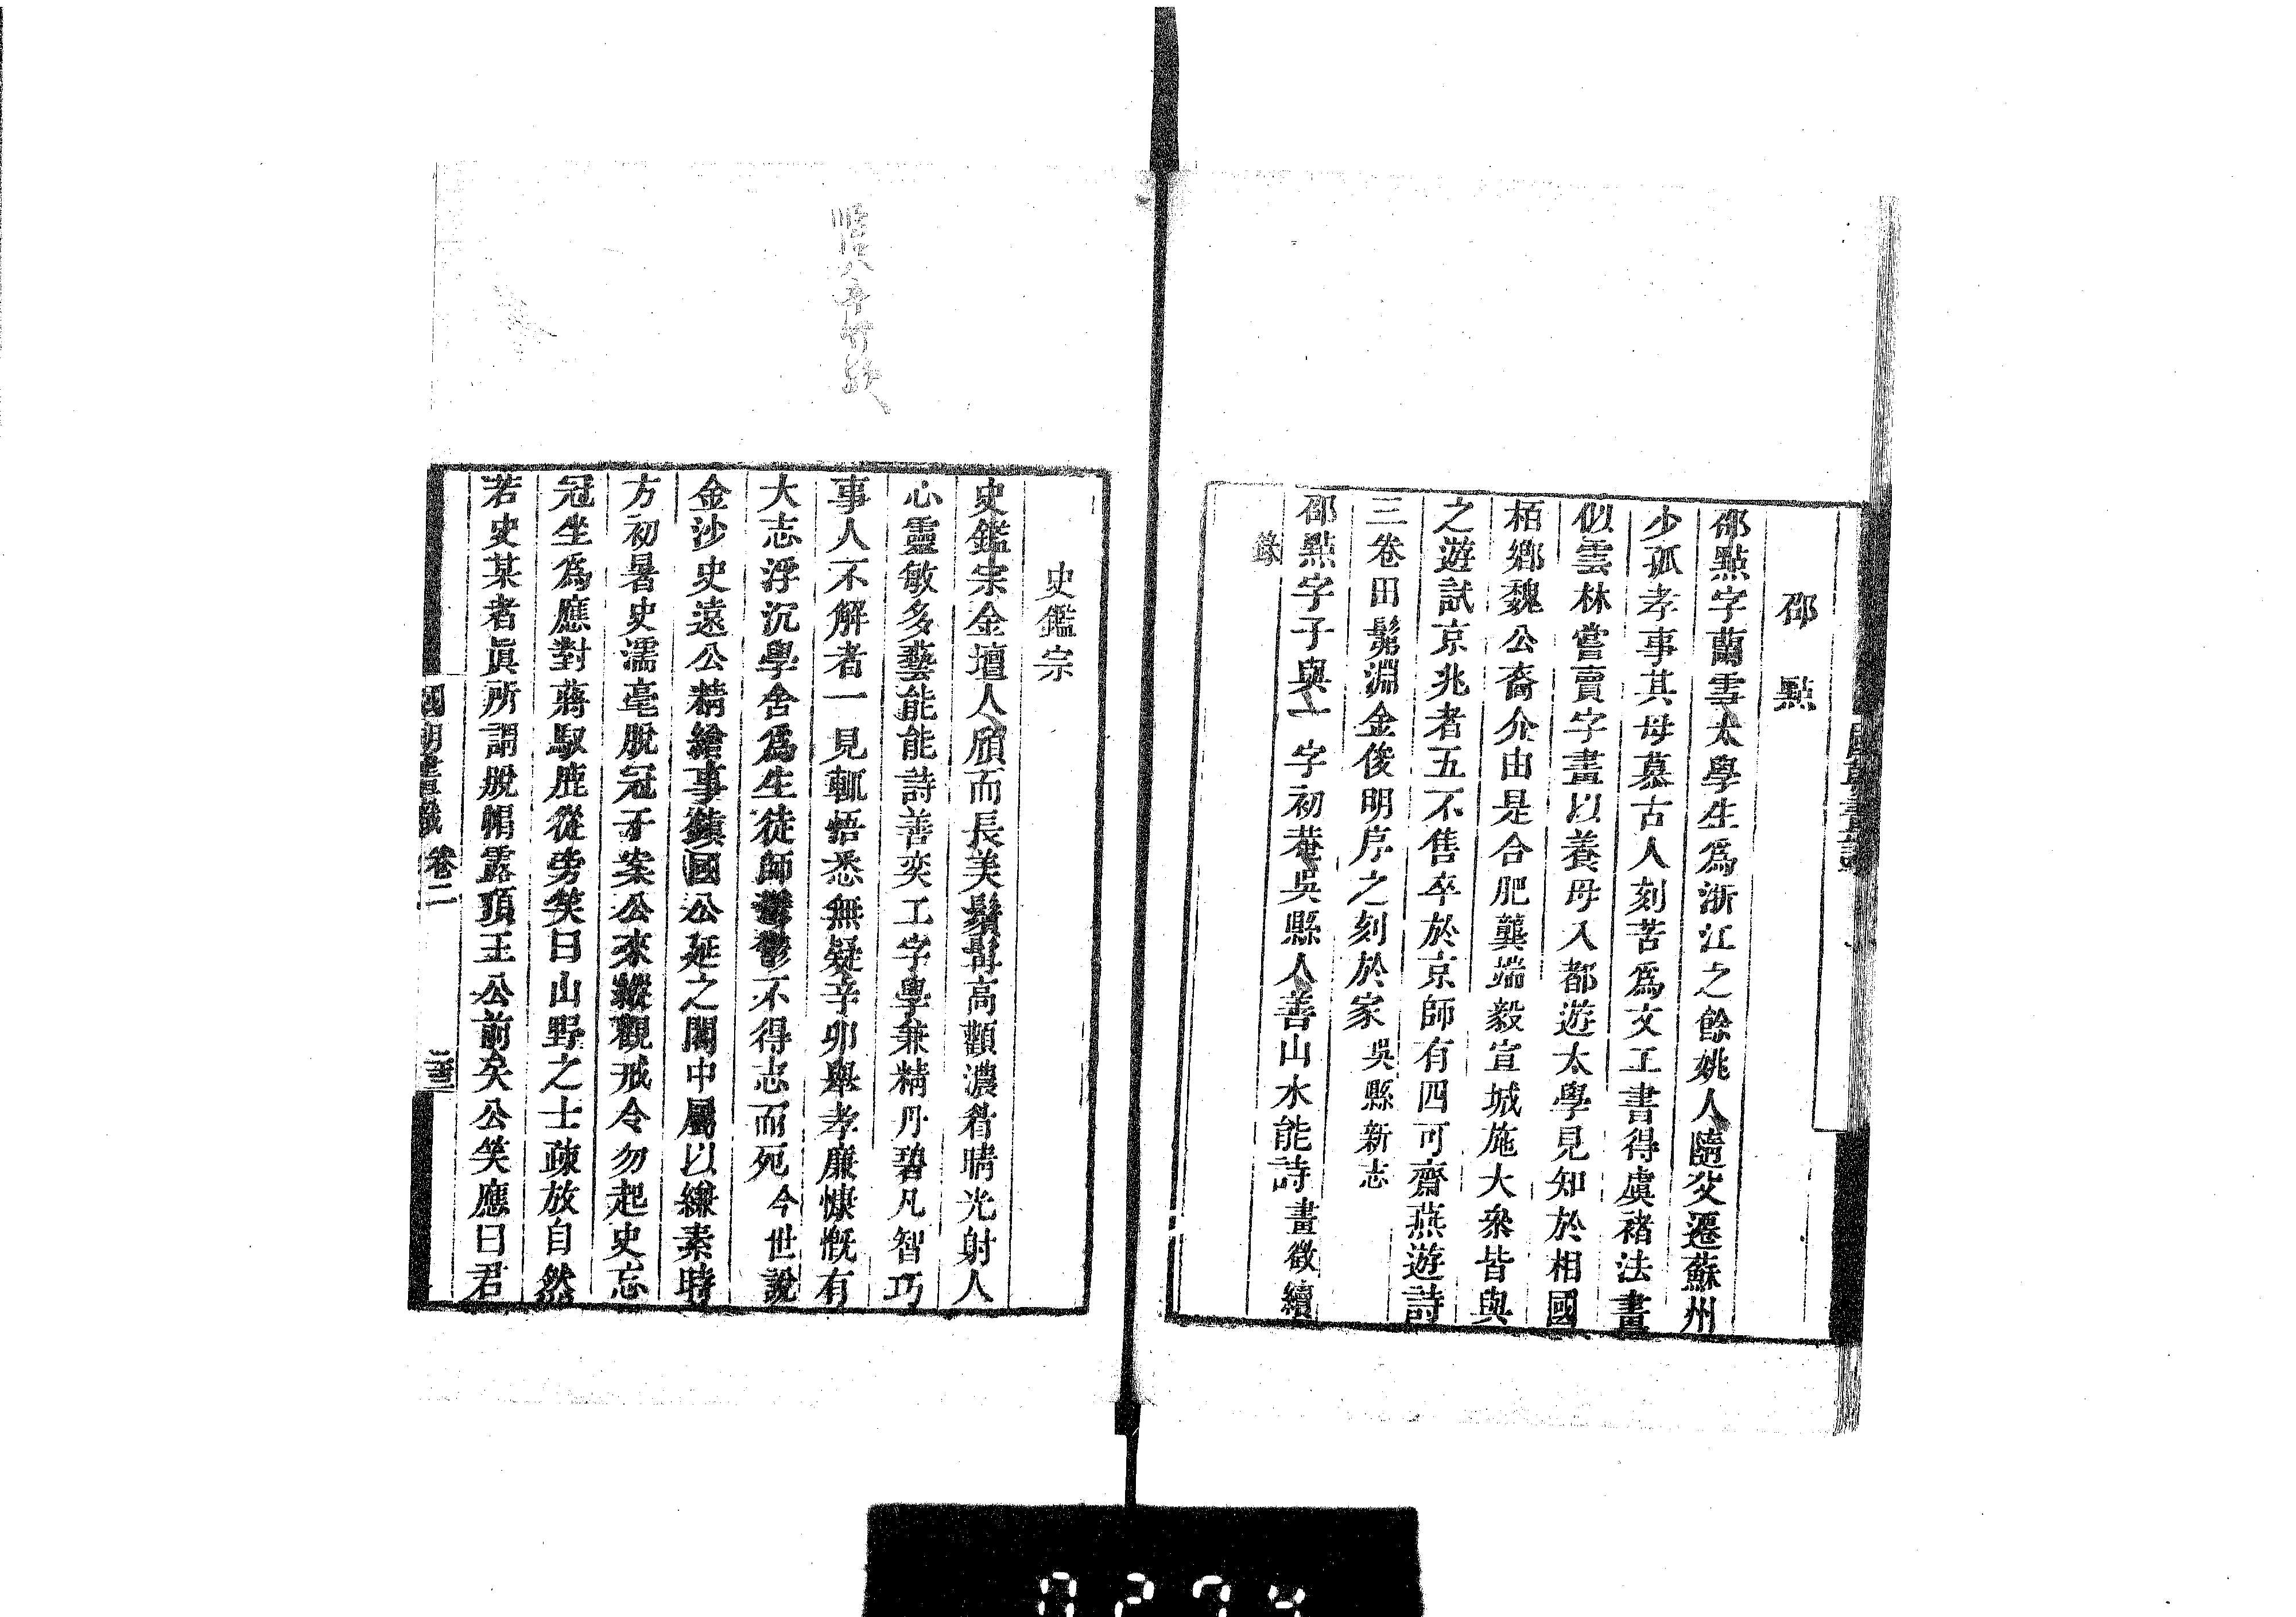 邵點
邵點字蘭雪太學生為浙江之餘姚人隨父遷蘇州
少孤孝事其母慕古人刻苦為文工書得虞褚法畫
似雲林嘗賣字畫以養母入都遊太學見知於相國
栢鄉魏公裔介由是合肥龔端毅宣城施大叅皆與
之遊試京兆者五不售卒於京師有四可齋燕遊詩
三卷田髴淵金俊明序之刻於家 吳縣新志
邵點字子與一字初菴吳縣人善山水能詩 畫徵續
錄
史鑑宗
史鑑宗金壇人頎而長美鬚髯高顴濃眉睛光射人
心靈敏多藝能能詩善奕工字學兼精丹碧凡智巧
事人不解者一見輒悟悉無疑辛卯舉孝廉慷慨有
大志浮沉學舍為生徒師鬱鬱不得志而死 今世說
金沙史遠公精繪事鎮國公延之閣中屬以縑素時
方初暑史濡毫脫冠于案公來縱觀戒令勿起史忘
冠坐為應對蔣馭鹿從旁笑曰山野之士疎放自然
若史某者眞所謂脫帽露頂王公前矣公笑應曰君
卷二
0274